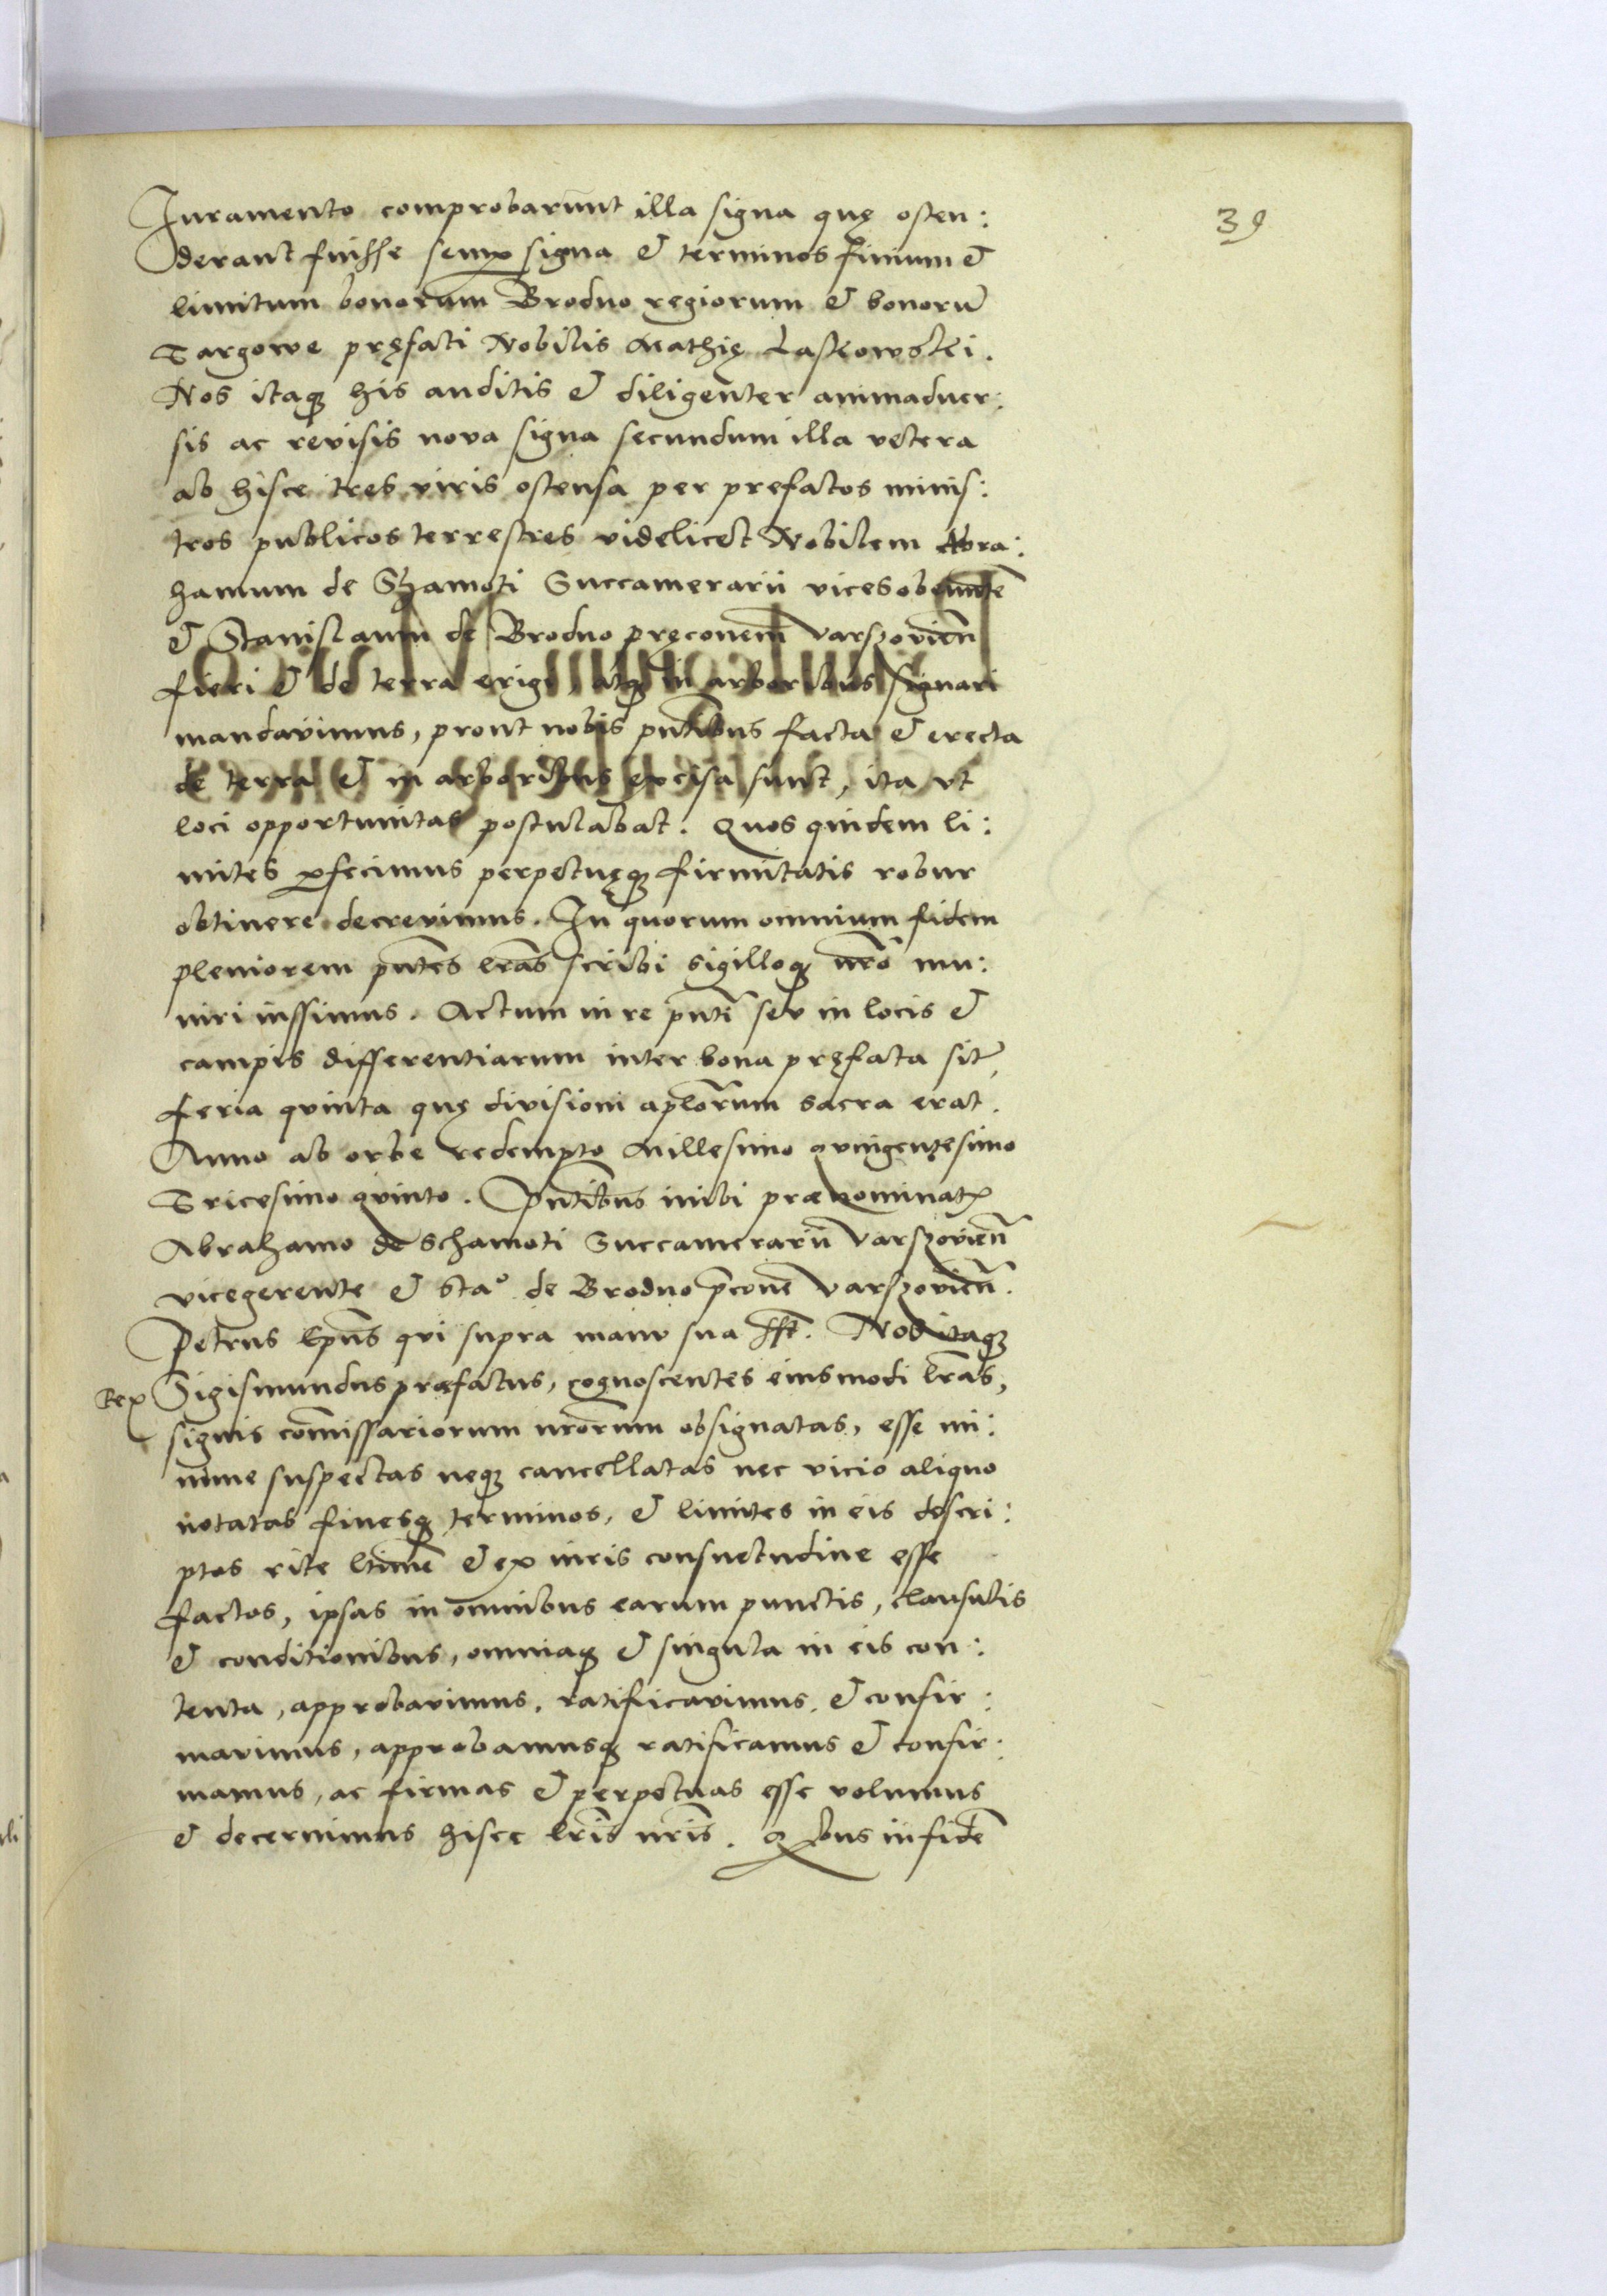 39
Juramento comprobarunt illa signa quę osten:
derant fuisse semp signa et terminos finium et
limitum bonorum Brodno regiorum et bonorũ
Targowe pręfati Nobilis Mathię Laskowskei.
Nos itaq his auditis et diligenter animaduer:
sis ac revisis nova signa secundum illa vetera
ab hisce tres viris ostensa per prefatos minis:
tros publicos terrestres videlicet Nobilem Abra:
hamum de Shamoti Succamerarii vices obeuntẽ
et Stanislaum de Brodno pręconem varszovieñ
fieri et de terra erigi, atq in arboribus signari
mandavimus, prout nobis pñtibus facta et erecta
de terra et in arboribus excisa sunt, ita vt
loci opportunitas postulabat. Quos quidem li:
mites pfecimus perpetuęq firmitatis robur
obtinere decrevimus. In quorum omnium fidem
pleniorem pñtes lr̃as scribi sigilloq nr̃o mu:
niri iussimus. Actum in re pñti seu in locis et
campis differentiarum inter bona pręfata sit̃
feria quinta quę divisioni apl̃orum sacra erat.
Anno ab orbe redempto Millesimo quingentesimo
Tricesimo quinto. Pñtibus inibi prænominatꝭ
Abrahamo de Schamoti Succamerarii Varszovieñ
vicegerente et Staº de Brodno p̃cone Varszovieñ.
Petrus Ep̃us qui supra manu sua sst. Nos itaq
Rex Sigismundus præfatus, cognoscentes eiusmodi lr̃as,
signis com̃issariorum nr̃orum obsignatas, esse mi:
nime suspectas neq cancellatas nec vicio aliquo
notatas finesq terminos, et limites in eis descri:
ptos rite ltimẽ et ex iuris consuetudine esse
factos, ipsas in omnibus earum punctis, clausulis
et conditionibus, omniaq et singula in eis con:
tenta, approbavimus, ratificavimus, et confir:
mavimus, approbamusq ratificamus et confir:
mamus, ac firmas et perpetuas esse volumus
et decernimus hisce lr̃is nr̃is. Qbus in fidẽ